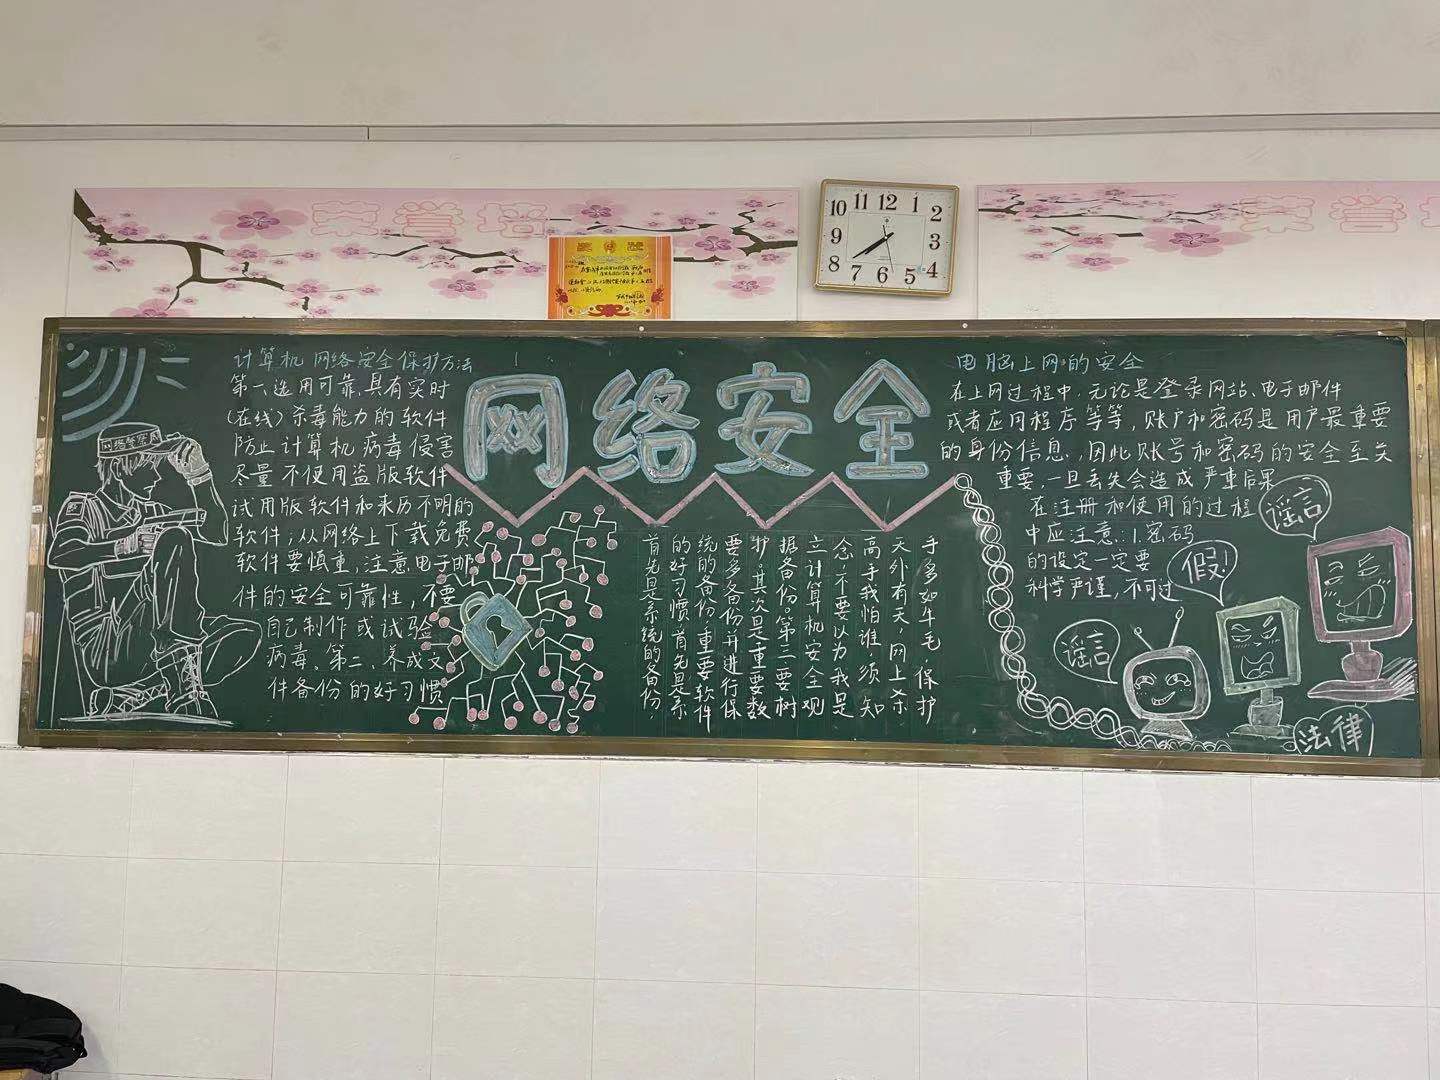 荣誉墙
荣誉
奖状
10 11 12 1 2
9 3
8 7 6 5 4
网络安全
网络警察
计算机网络安全保护方法
第一、选用可靠,具有实时
(在线)杀毒能力的软件
防止计算机病毒侵害
尽量不使用盗版软件
试用版软件和来历不明的
软件;从网络上下载免费
软件要慎重,注意电子邮
件的安全可靠性,不要
自己制作或试验
病毒。第二、养成文
件备份的好习惯
首先是系统的备份,
的好习惯首先是系
统的备份,重要软件
要多多备份并进行保
护。其次是重要数
据备份。第三要树
立计算机安全观
念,不要以为我是
高手我怕谁须知
天外有天,网上杀
手多如牛毛,保护
电脑上网的安全
在上网过程中,无论是登录网站、电子邮件
或者应用程序等等,账户和密码是用户最重要
的身份信息,因此账号和密码的安全至关
重要,一旦丢失会造成严重后果
在注册和使用的过程
中应注意:1.密码
的设定一定要
科学严谨,不可过
谣言
假!
谣言
法律